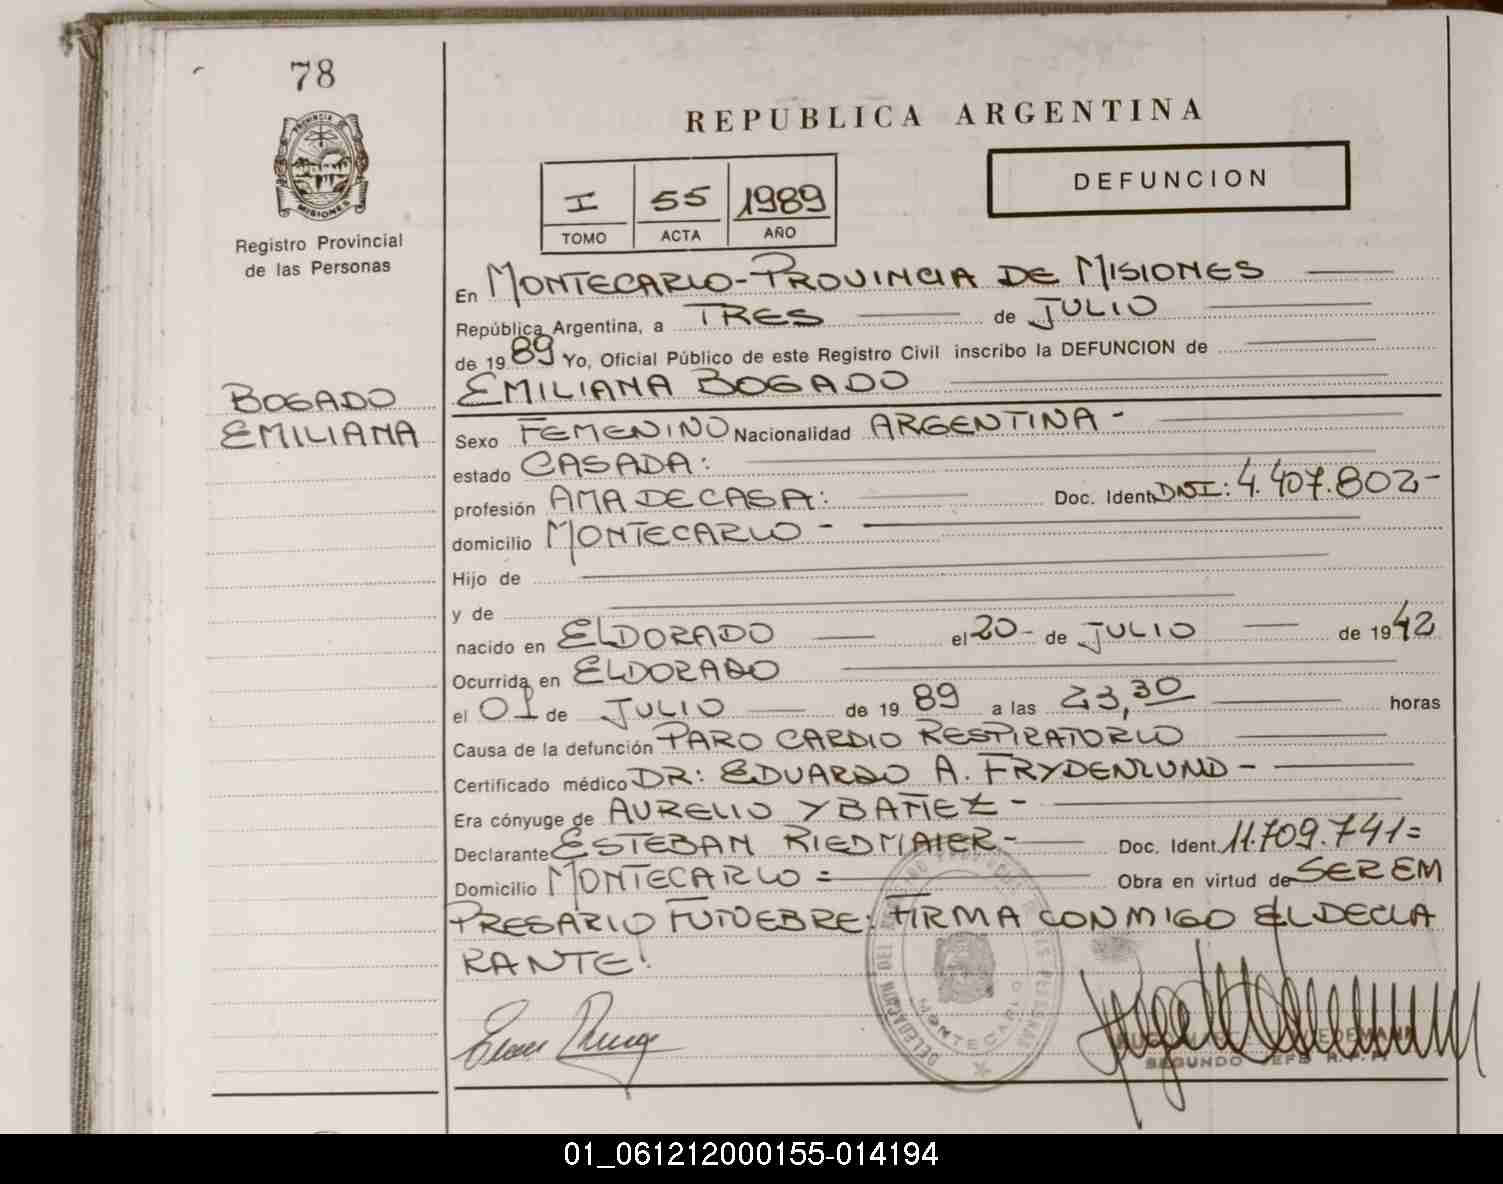 78
PROVINCIA
MISIONES
Registro Provincial
de las Personas
REPUBLICA ARGENTINA
I 55 1989
TOMO ACTA AÑO
DEFUNCION
En MONTECARLO-PROVINCIA DE MISIONES
República Argentina, a TRES de JULIO
de 1989 Yo, Oficial Público de este Registro Civil inscribo la DEFUNCION de
EMILIANA BOGADO
BOGADO
EMILIANA
Sexo FEMENINO Nacionalidad ARGENTINA -
estado CASADA:
profesión AMA DE CASA: Doc. Ident. DNI: 4.407.802-
domicilio MONTECARLO -
Hijo de
y de
nacido en ELDORADO el 20- de JULIO de 1942
Ocurrida en ELDORADO
el 01 de JULIO de 1989 a las 23,30 horas
Causa de la defunción PARO CARDIO RESPIRATORIO
Certificado médico DR: EDUARDO A. FRYDENLUND -
Era cónyuge de AURELIO YBAÑEZ -
Declarante ESTEBAN RIEDMAIER - Doc. Ident. 11.709.741=
Domicilio MONTECARLO = Obra en virtud de SER EM
PRESARIO FUNEBRE: FIRMA CONMIGO EL DECLA
RANTE!
DELEGACION DEL REGISTRO PROVINCIAL DE LAS PERSONAS
MONTECARLO
SEGUNDO JEFE R.P.P.
01_061212000155-014194